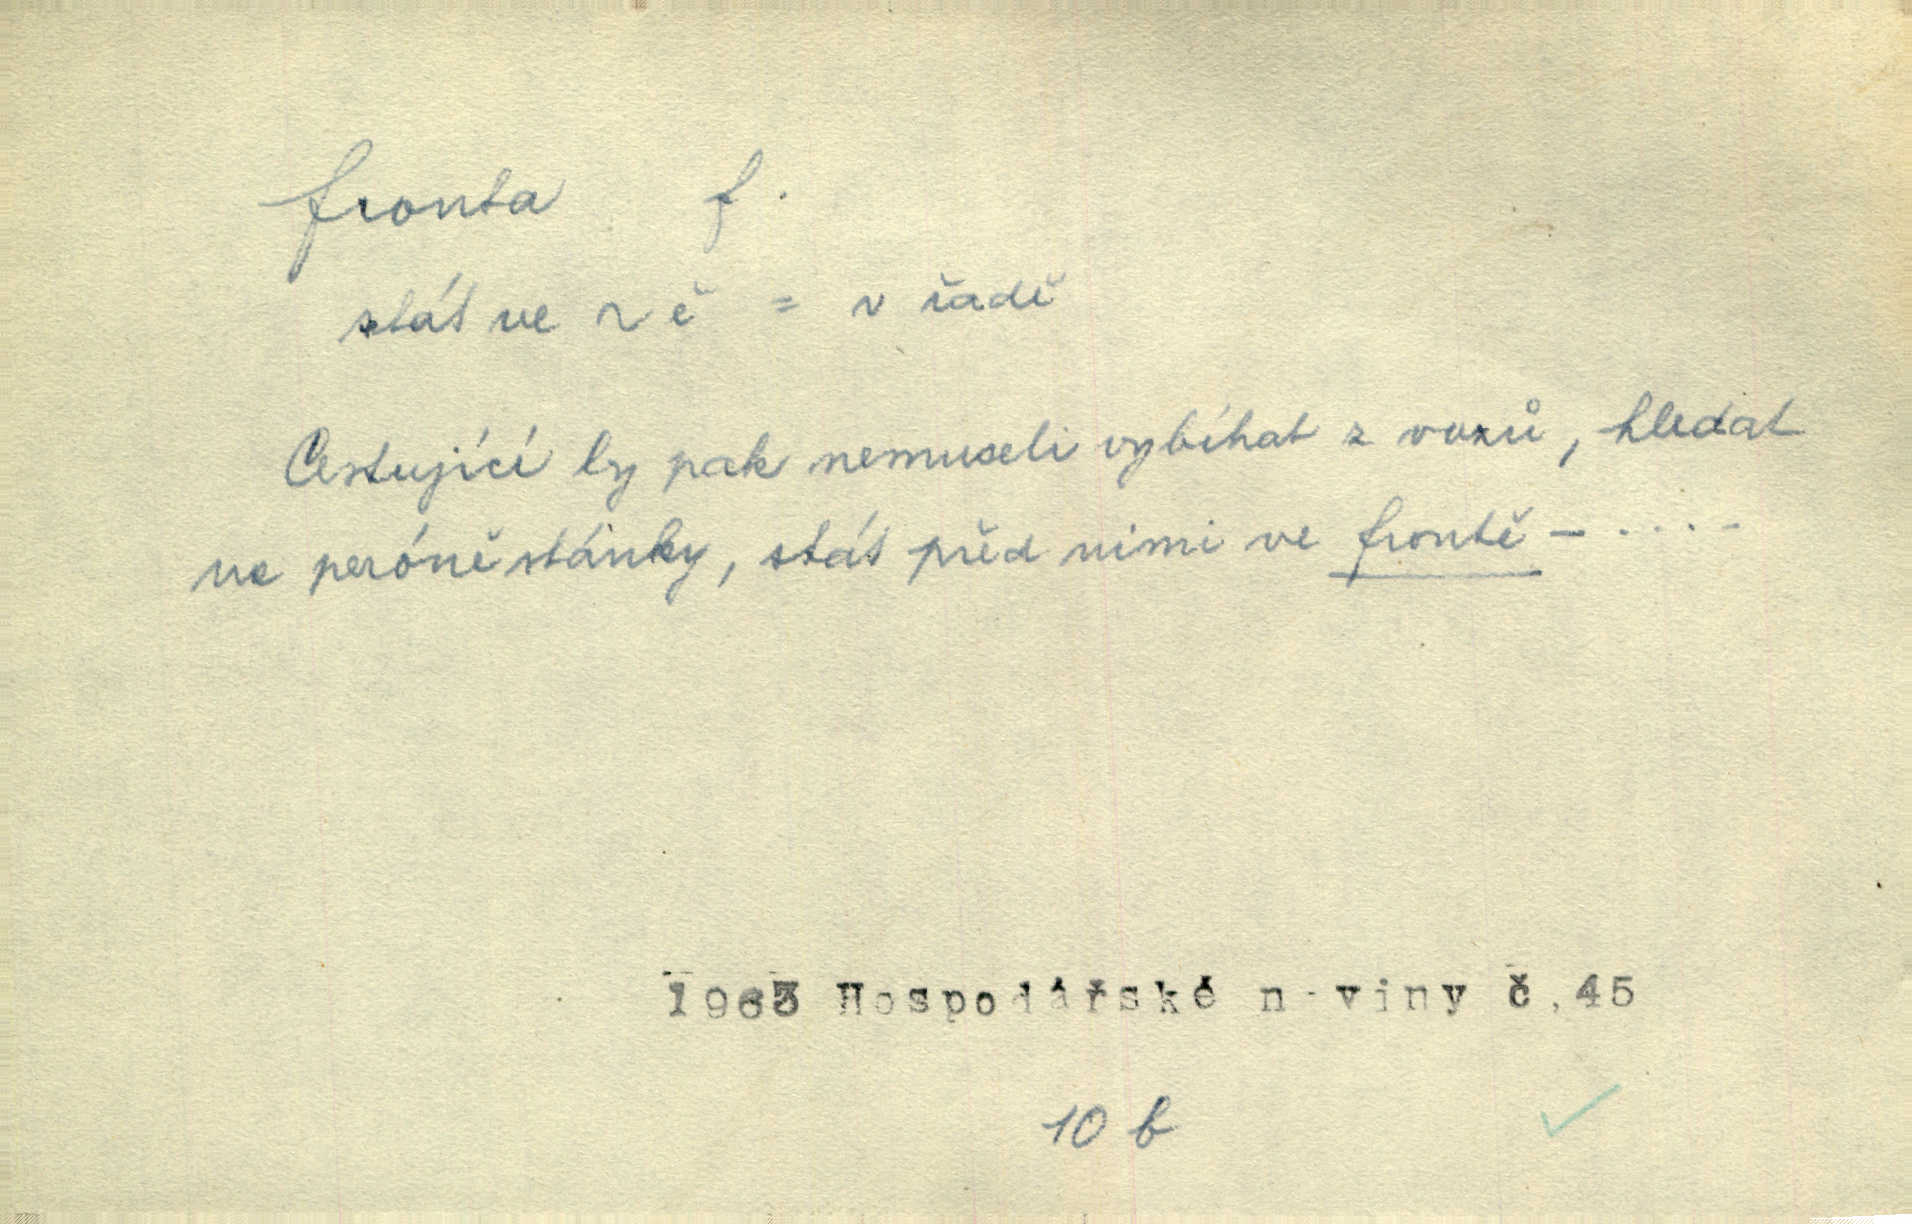 fronta f.
stát ve ~ ě = v řadě
Cestující by pak nemuseli vybíhat z vozů, hledat
na peróně stánky, stát před nimi ve frontě - .....-
1963 Hospodářské n viny č.45
10 b